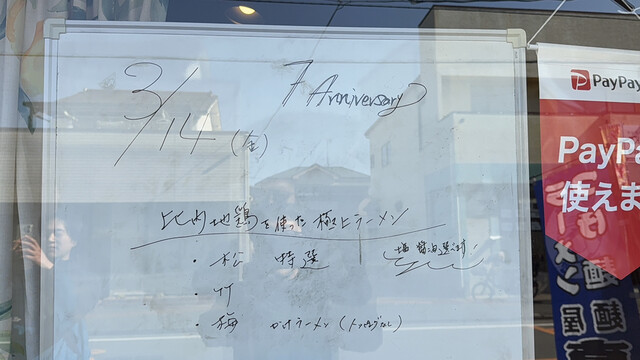 3/14(金)
7 Anniversary
比内地鶏を使った極上ラーメン
・松 特選
塩 醤油選べます!
・竹
・梅 かけラーメン(トッピングなし)
PayPay
PayPa
使えま
麺屋